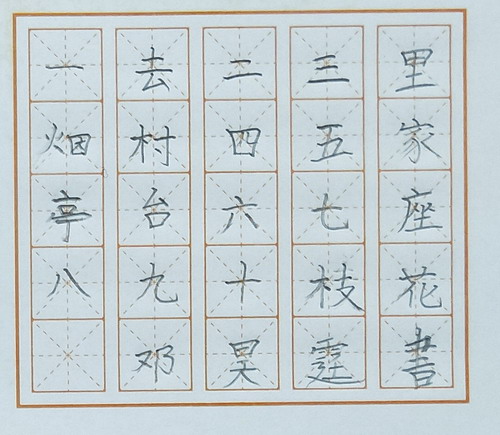 一去二三里
烟村四五家
亭台六七座
八九十枝花
邓昊霆书